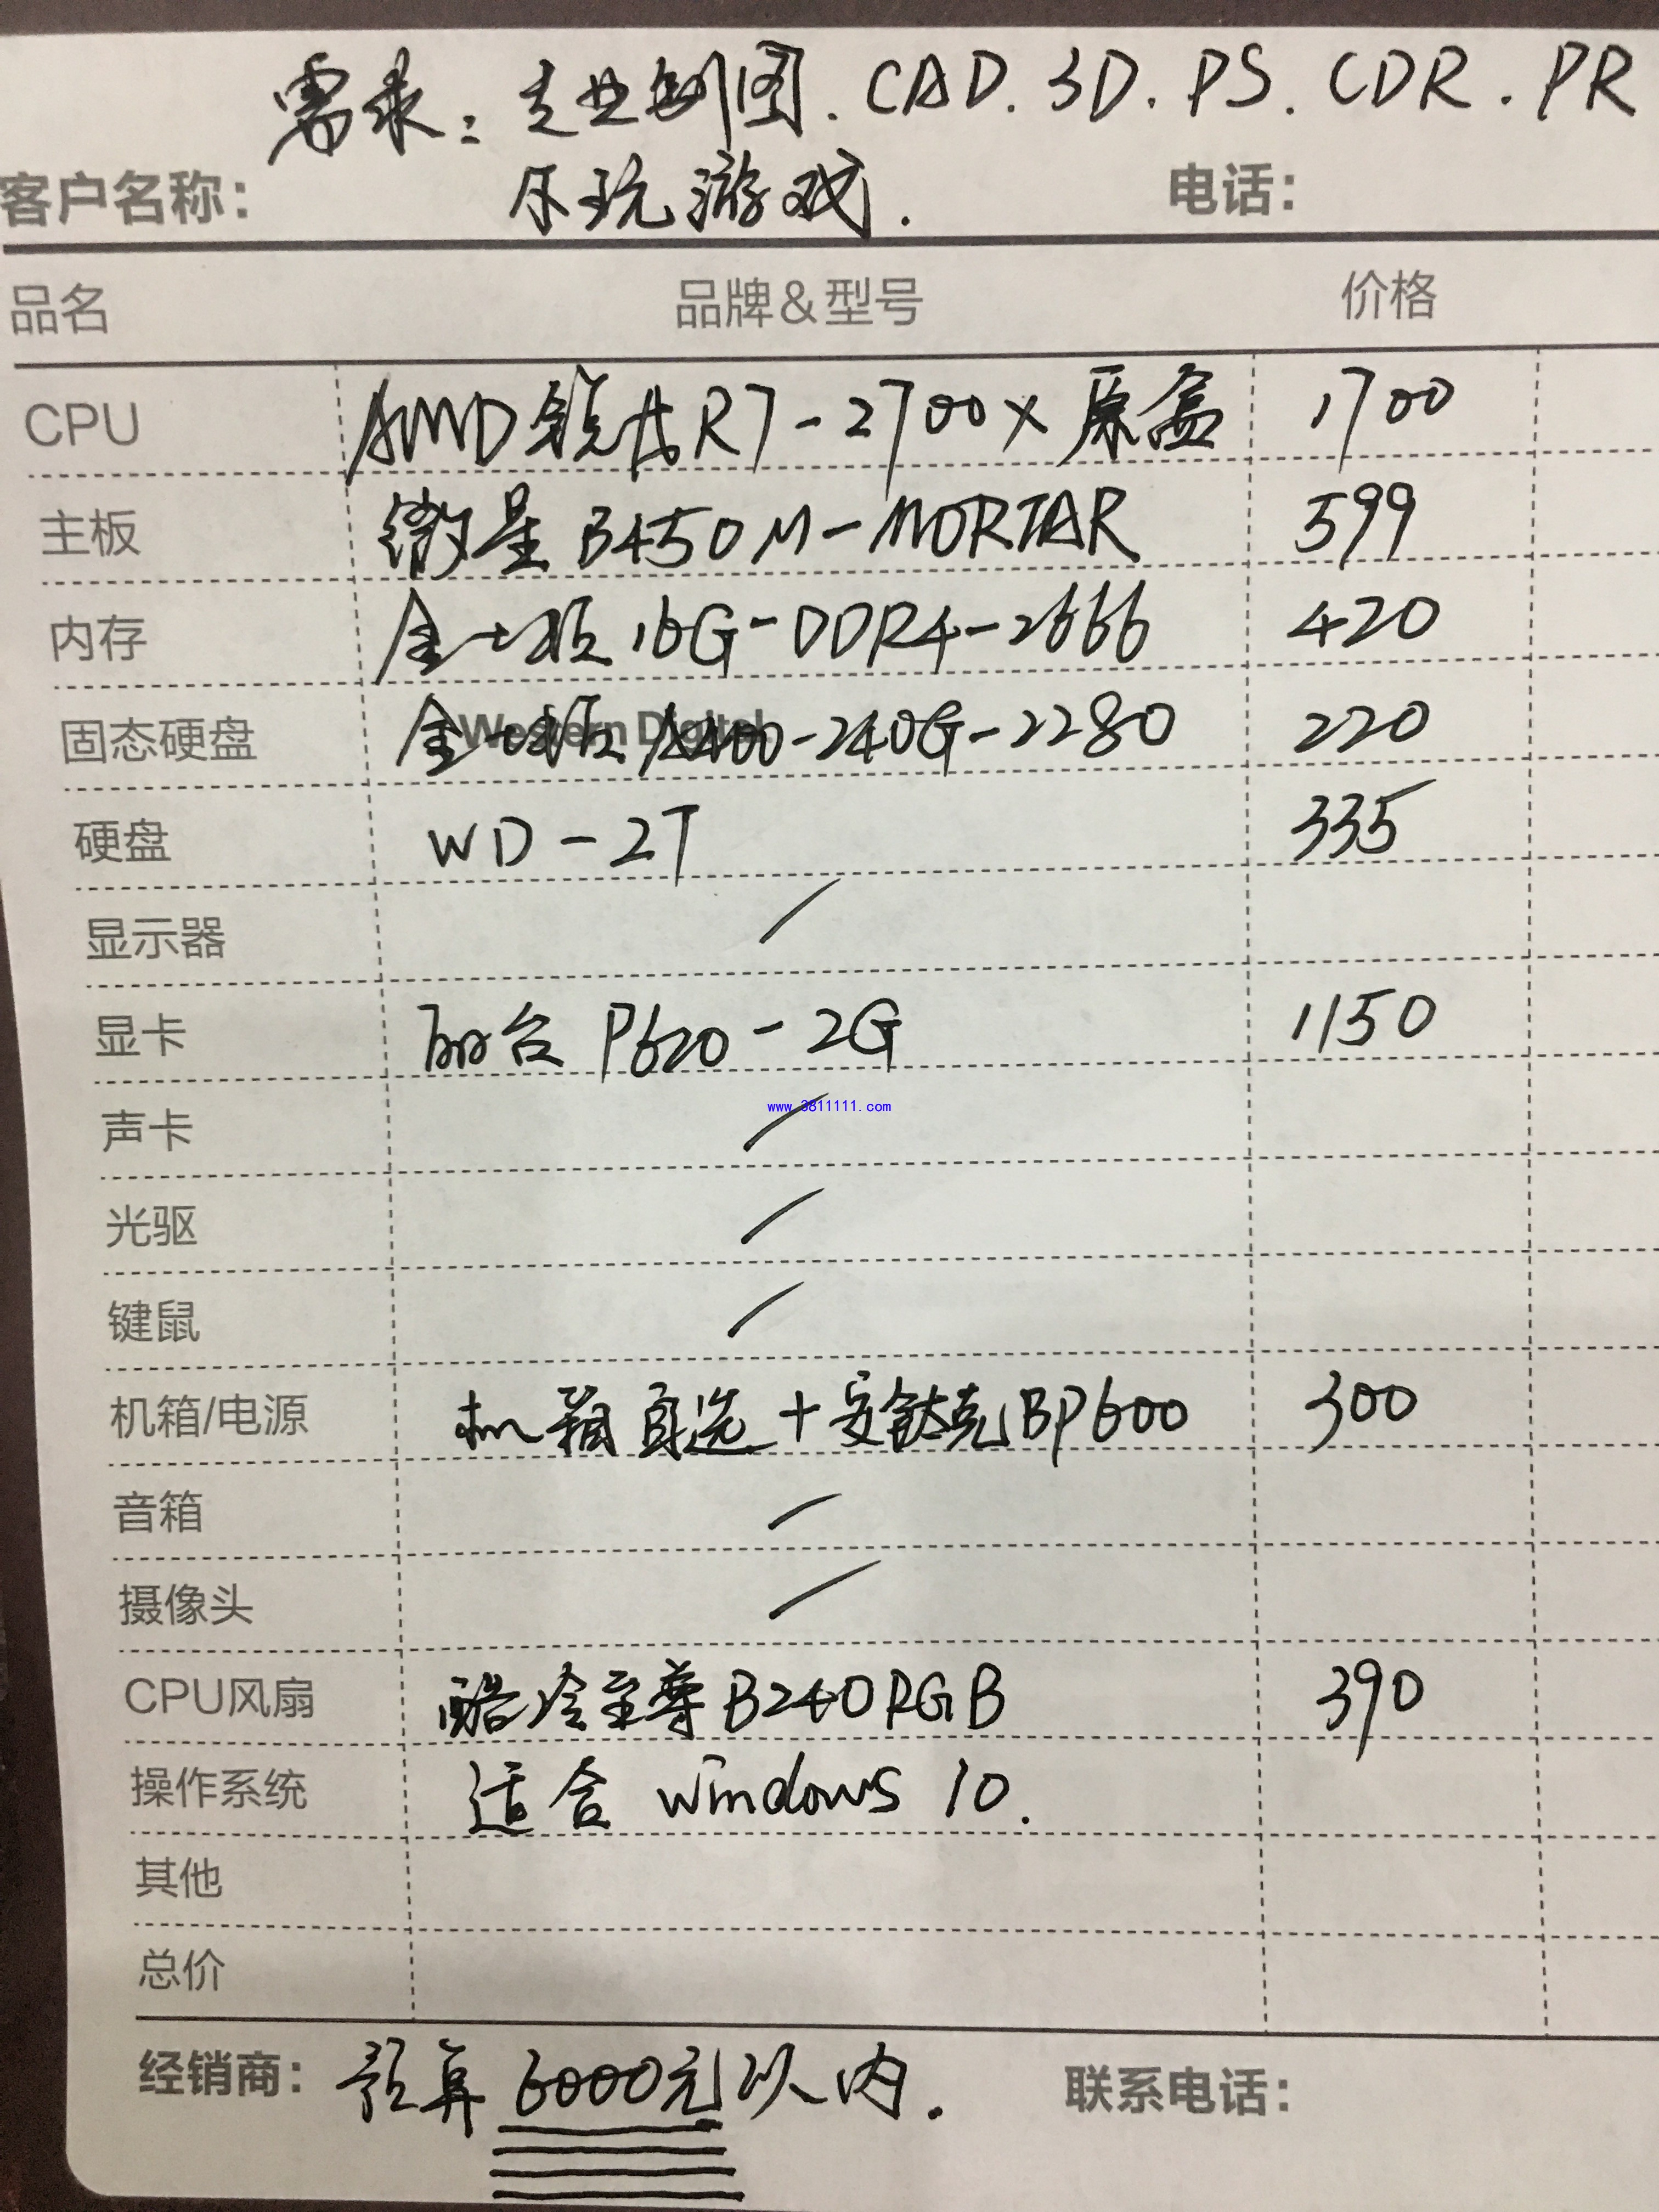 需求：专业制图．CAD．3D．PS．CDR．PR
不玩游戏．
客户名称： 电话：
品名 品牌＆型号 价格
CPU AMD锐龙R7-2700X原盒 1700
主板 微星B450M-MORTAR 599
内存 金士顿16G-DDR4-2666 420
固态硬盘 Western Digital 金士顿A400-240G-2280 220
硬盘 WD-2T 335
显示器 /
显卡 丽台P620-2G 1150
www.3811111.com
声卡 /
光驱 /
键鼠 /
机箱/电源 机箱自选+安钛克BP600 300
音箱 /
摄像头 /
CPU风扇 酷冷至尊B240RGB 390
操作系统 适合windows 10.
其他
总价
经销商： 预算6000元以内． 联系电话：